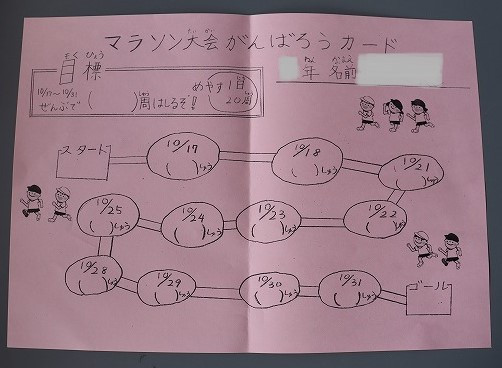 マラソン大会がんばろうカード
たいかい
年 名前
ねん なまえ
もくひょう
目標
10/17〜10/31
ぜんぶで ( )周はしるぞ!!
しゅう
めやす1日
20周
スタート
10/17
( )しゅう
10/18
( )しゅう
10/21
( )しゅう
10/22
( )しゅう
10/23
( )しゅう
10/24
( )しゅう
10/25
( )しゅう
10/28
( )しゅう
10/29
( )しゅう
10/30
( )しゅう
10/31
( )しゅう
ゴール